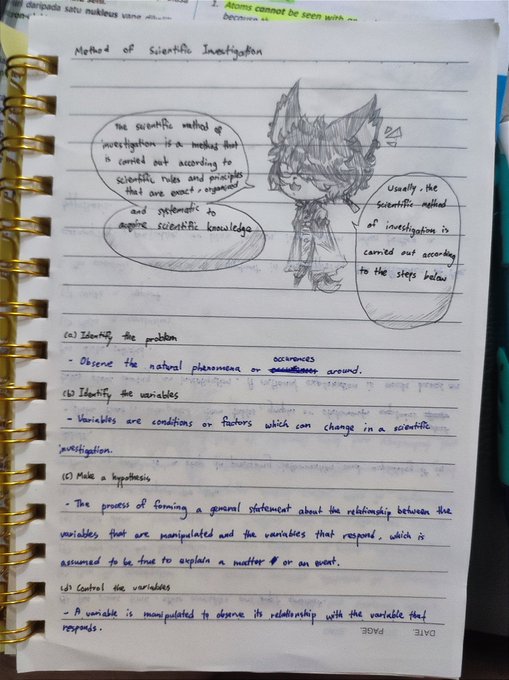 ri daripada satu nukleus yang
1. Atoms cannot be seen with
because
Method of Scientific Investigation
The scientific method of
investigation is a method that
is carried out according to
scientific rules and principles
that are exact, organised
and systematic to
acquire scientific knowledge
Usually, the
scientific method
of investigation is
carried out according
to the steps below
(a) Identify the problem
- Observe the natural phenomena or occurences around.
(b) Identify the variables
- Variables are conditions or factors which can change in a scientific
investigation.
(c) Make a hypothesis
- The process of forming a general statement about the relationship between the
variables that are manipulated and the variables that respond, which is
assumed to be true to explain a matter or an event.
(d) Control the variables
- A variable is manipulated to observe its relationship with the variable that
responds.
DATE. PAGE.